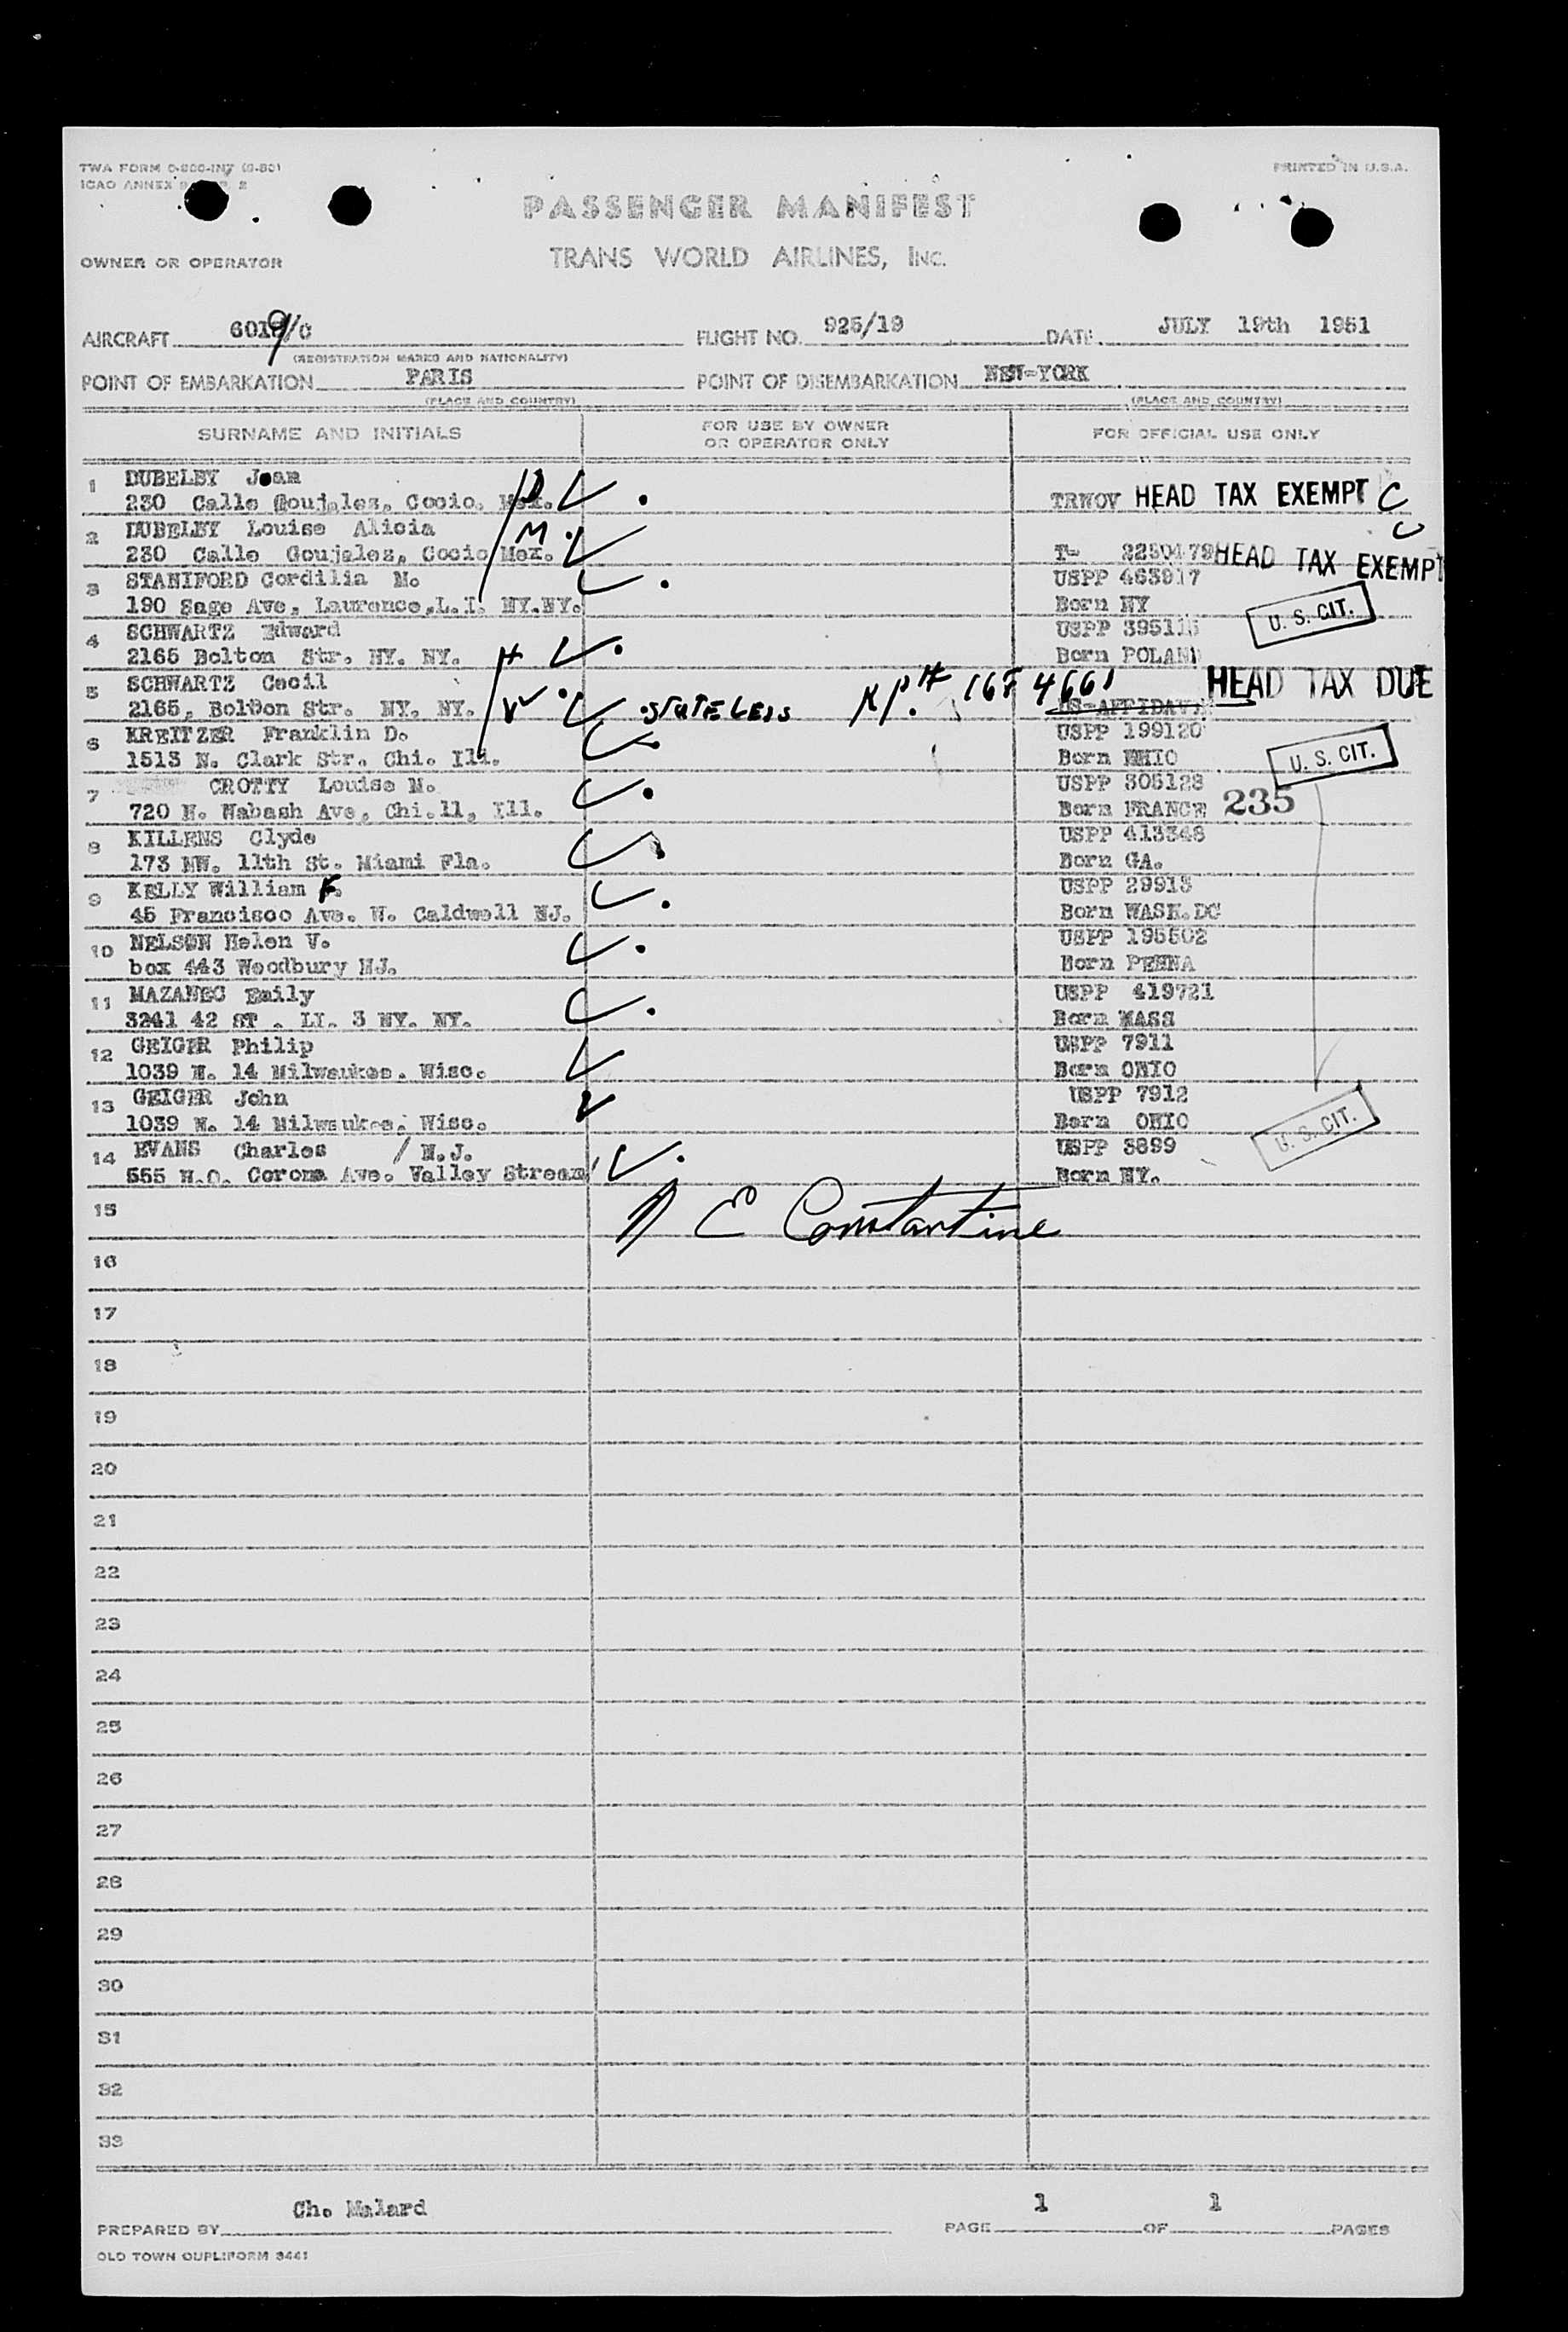 TWA FORM O-800-INT
ICAO ANNEX 9
PRINTED IN U.S.A.
PASSENGER MANIFEST
OWNER OR OPERATOR
TRANS WORLD AIRLINES, INC.
AIRCRAFT 6019/C FLIGHT NO. 925/19 DATE JULY 19th 1951
(REGISTRATION MARKS AND NATIONALITY)
POINT OF EMBARKATION PARIS POINT OF DISEMBARKATION NEW-YORK
(PLACE AND COUNTRY) (PLACE AND COUNTRY)
SURNAME AND INITIALS FOR USE BY OWNER OR OPERATOR ONLY FOR OFFICIAL USE ONLY
1 DUBELBY Jean
230 Calle Goujales, Cocio. Mex. TRWOV HEAD TAX EXEMPT C
2 DUBELBY Louise Alicia M
230 Calle Goujales, Cocio Mex. T- HEAD TAX EXEMPT
3 STANIFORD Cordilia M. USPP 463917
190 Sage Ave, Laurence,L.I. NY.NY. Born NY U. S. CIT.
4 SCHWARTZ Edward USPP 395115
2165 Bolton Str. NY. NY. H Born POLAND
5 SCHWARTZ Cecil HEAD TAX DUE
2165, Bolton Str. NY. NY. W STATELESS US-AFFIDAVIT
6 KREITZER Franklin D. USPP 199120
1513 N. Clark Str. Chi. Ill. Born OHIO U. S. CIT.
7 CROTTY Louise M. USPP 305128
720 N. Wabash Ave, Chi.11, Ill. Born FRANCE 235
8 KILLENS Clyde USPP 413348
173 NW. 11th St. Miami Fla. Born GA.
9 KELLY William F. USPP 29913
45 Francisco Ave. W. Caldwell NJ. Born WASH.DC
10 NELSON Helen V. USPP 195502
box 443 Woodbury NJ. Born PENNA
11 MAZANEC Emily USPP 419721
3241 42 ST . LI. 3 NY. NY. Born MASS
12 GEIGER Philip USPP 7911
1039 N. 14 Milwaukee. Wisc. Born OHIO
13 GEIGER John USPP 7912
1039 N. 14 Milwaukee. Wisc. Born OHIO U. S. CIT.
14 EVANS Charles / N.J. USPP 3899
555 N.O. Corona Ave. Valley Stream Born NY.
15 E Constantine
16
17
18
19
20
21
22
23
24
25
26
27
28
29
30
31
32
33
Ch. Malard
PREPARED BY PAGE 1 OF 1 PAGES
OLD TOWN DUPLIFORM 3441